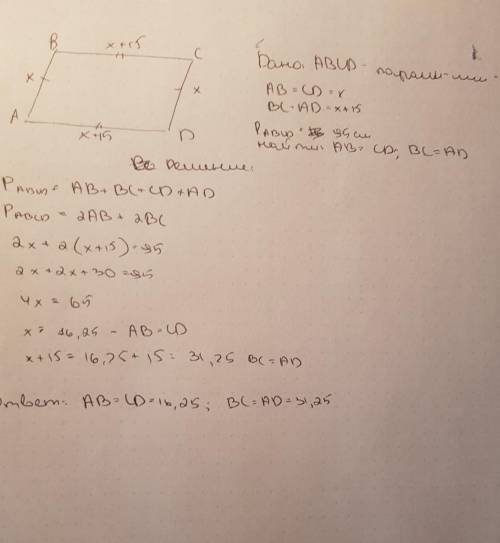 B
x+15
C
x
x
A
x+15
D
Дано: ABCD - 
AB = CD = x
BC = AD = x+15
PABCD = 95 см
Найти: AB = CD; BC = AD
Решение:
PABCD = AB + BC + CD + AD
PABCD = 2AB + 2BC
2x + 2(x+15) = 95
2x + 2x + 30 = 95
4x = 65
x = 16,25 - AB = CD
x+15 = 16,25 + 15 = 31,25 BC = AD
Ответ: AB = CD = 16,25; BC = AD = 31,25